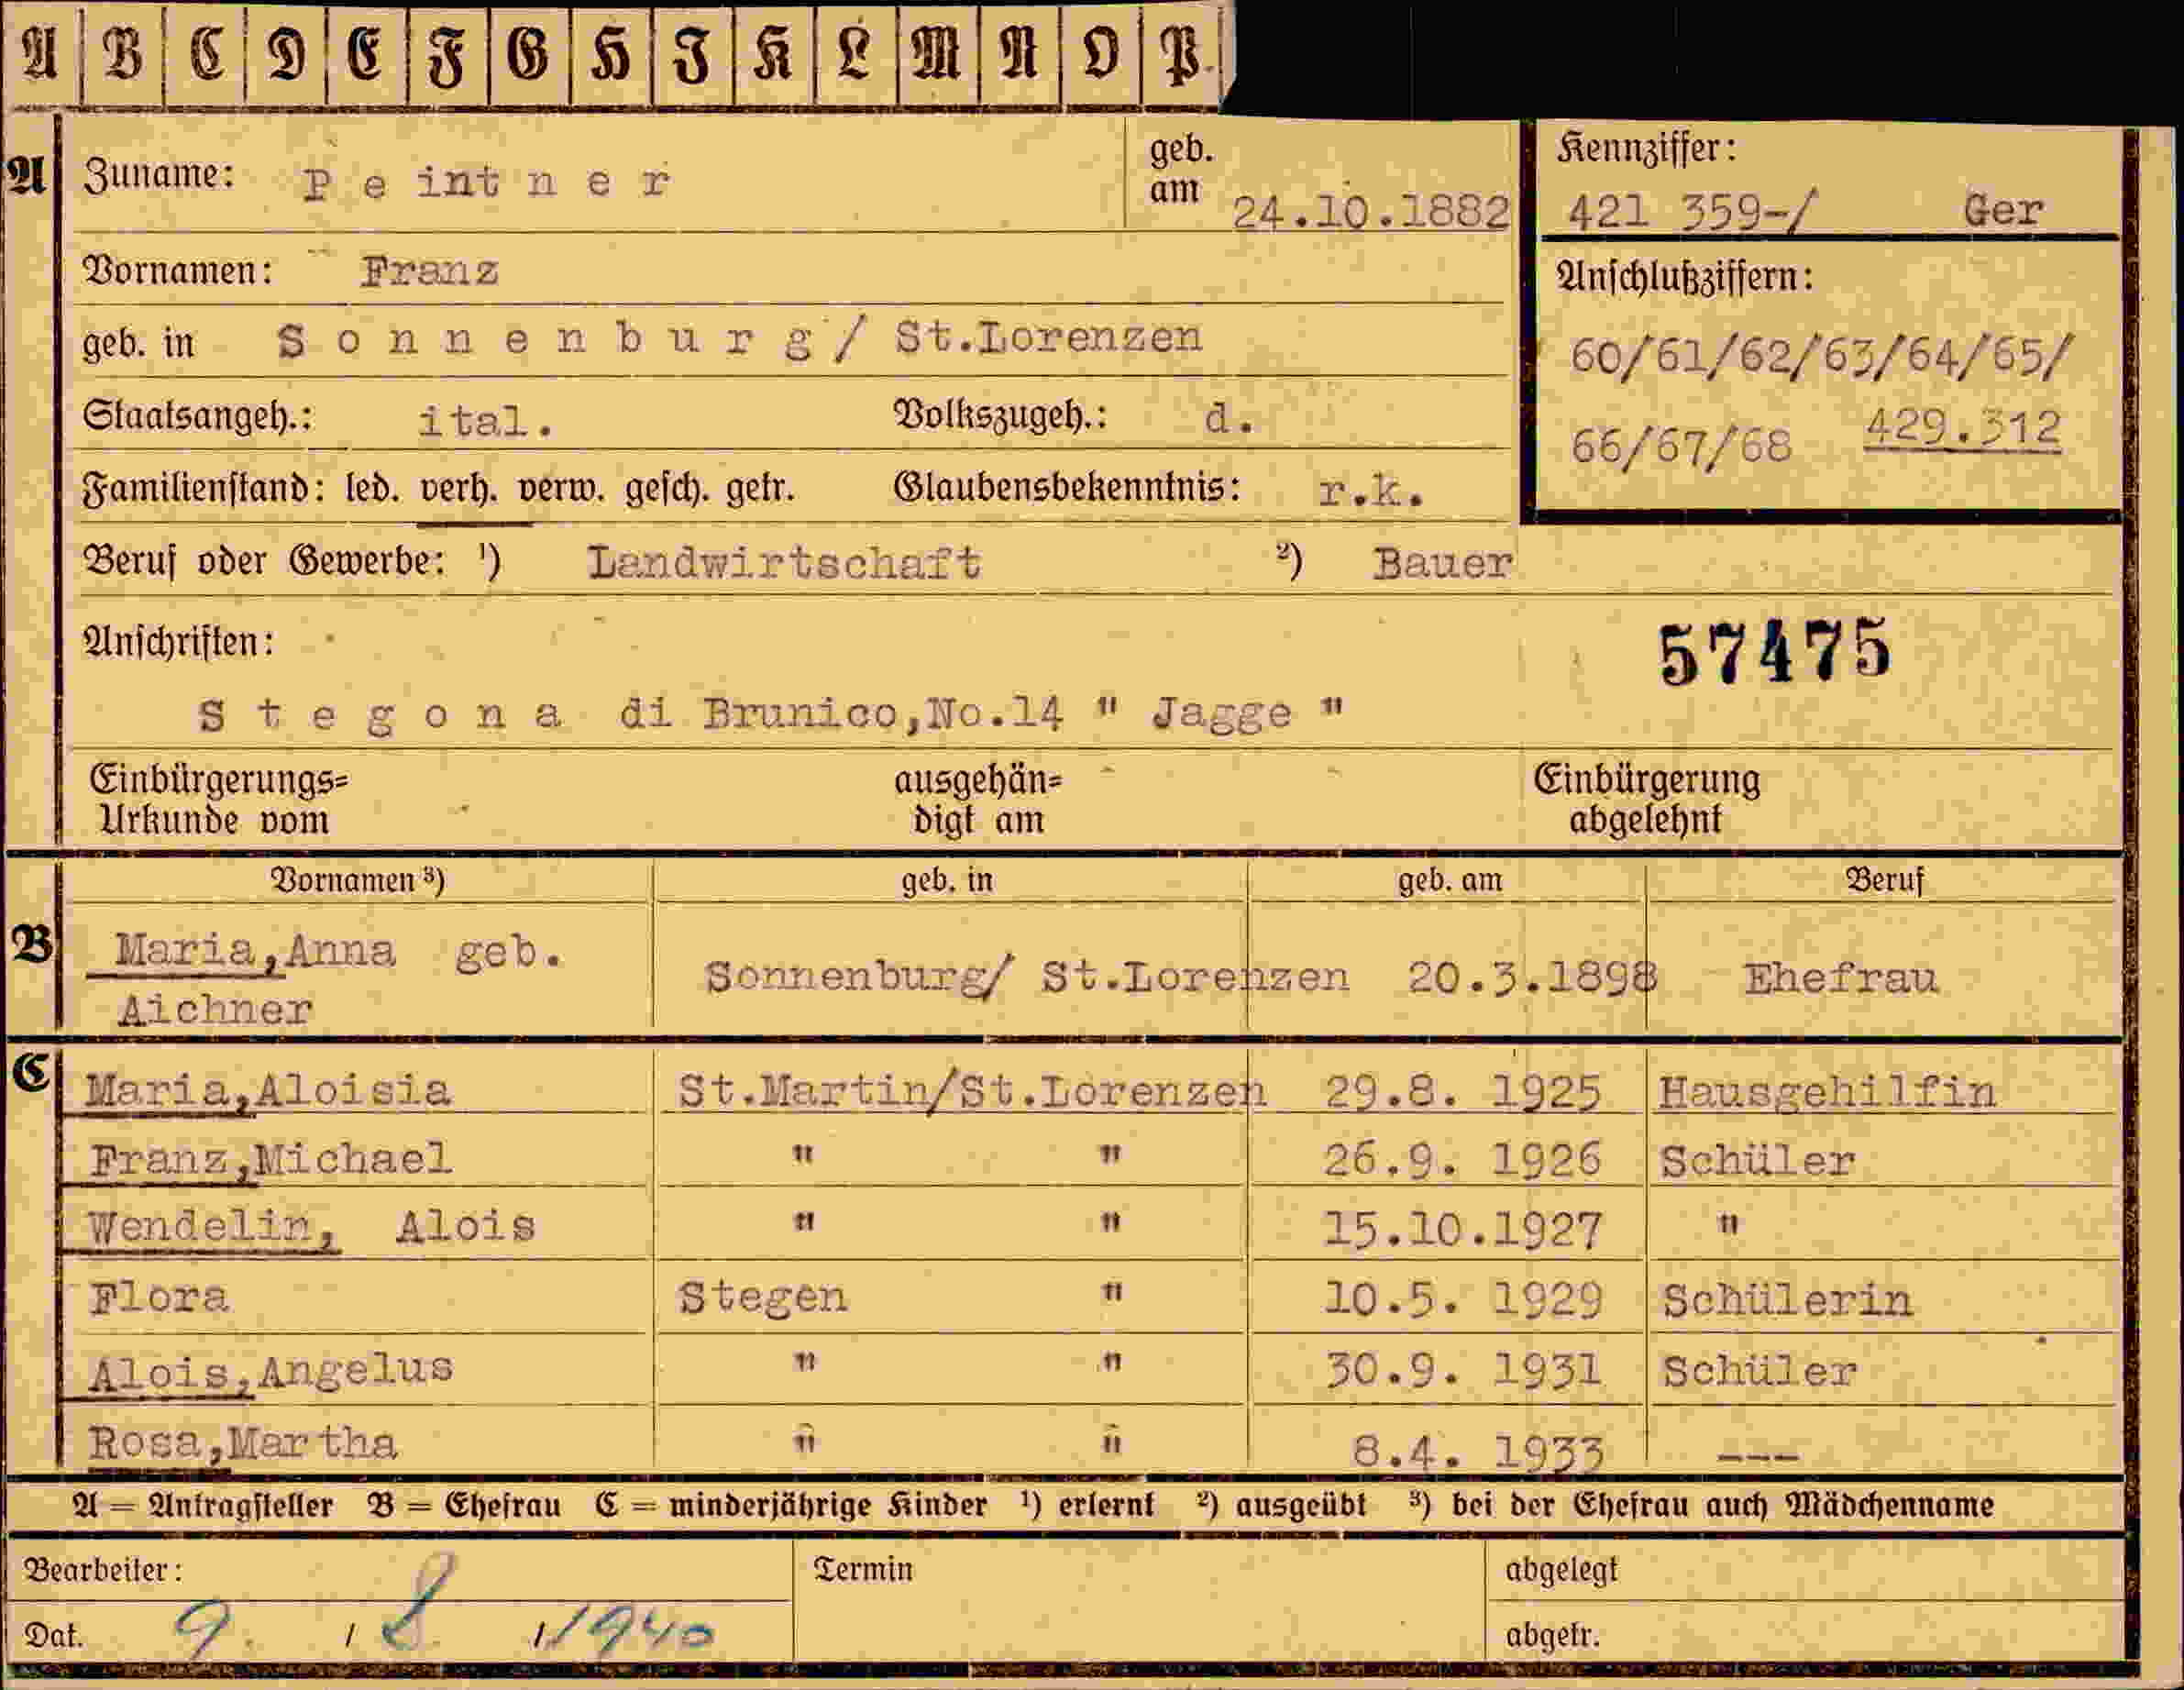 A B C D E F G H I K L M N O P
A Zuname: Peintner geb. am 24.10.1882
Kennziffer:
421 359-/ Ger
Vornamen: Franz
Anschlußziffern:
geb. in Sonnenburg/ St.Lorenzen
60/61/62/63/64/65/
Staatsangeh.: ital. Volkszugeh.: d.
66/67/68 429.312
Familienstand: led. verh. verw. gesch. getr. Glaubensbekenntnis: r.k.
Beruf oder Gewerbe: ¹) Landwirtschaft ²) Bauer
Anschriften:
57475
Stegona di Brunico,No.14 " Jagge "
Einbürgerungs= ausgehän= Einbürgerung
Urkunde vom digt am abgelehnt
Vornamen ³) geb. in geb. am Beruf
B Maria,Anna geb.
Aichner Sonnenburg/ St.Lorenzen 20.3.1898 Ehefrau
C Maria,Aloisia St.Martin/St.Lorenzen 29.8. 1925 Hausgehilfin
Franz,Michael " " 26.9. 1926 Schüler
Wendelin, Alois " " 15.10.1927 "
Flora Stegen " 10.5. 1929 Schülerin
Alois,Angelus " " 30.9. 1931 Schüler
Rosa,Martha " " 8.4. 1933 ---
A = Antragsteller B = Ehefrau C = minderjährige Kinder ¹) erlernt ²) ausgeübt ³) bei der Ehefrau auch Mädchenname
Bearbeiter: Termin abgelegt
Dat. 9. / 8. / 1940 abgetr.